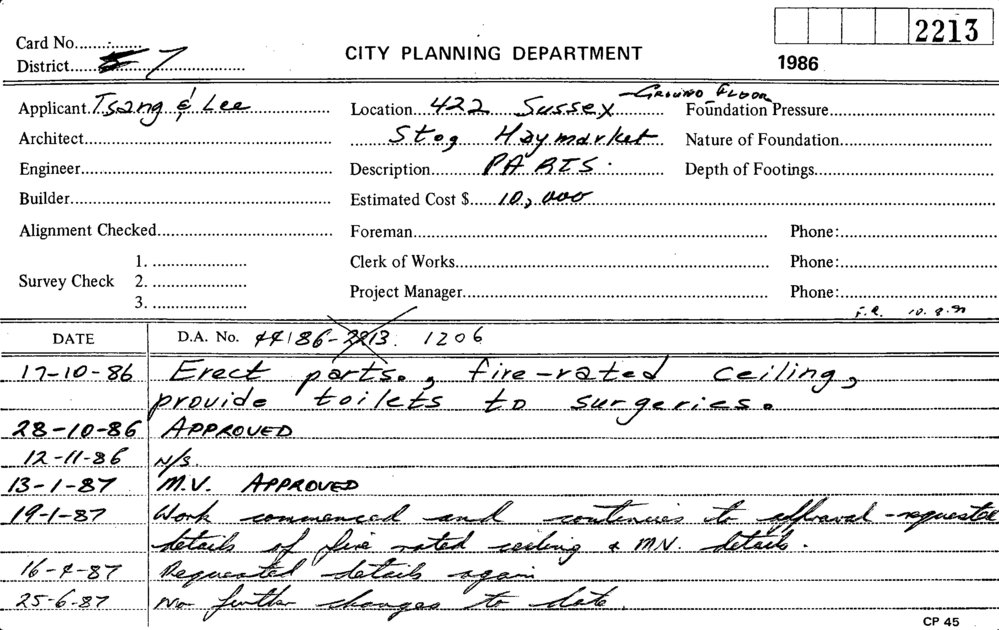 2213
Card No.
District 7
CITY PLANNING DEPARTMENT
1986
Applicant Tsang & Lee
Location 422 Sussex GROUND FLOOR
Foundation Pressure
Architect
St Haymarket
Nature of Foundation
Engineer
Description PARTS.
Depth of Footings
Builder
Estimated Cost $ 10,000
Alignment Checked
Foreman
Phone:
Survey Check
1.
2.
3.
Clerk of Works
Phone:
Project Manager
Phone:
F.R. 10.8.
DATE
D.A. No. 44 86-2213. 1206
17-10-86 Erect parts., fire-rated ceiling,
provide toilets to surgeries.
28-10-86 APPROVED
12-11-86 N/S.
13-1-87 M.V. APPROVED
19-1-87 Work commenced and continues to approval - requested
details of fire rated ceiling & M.V. details.
16-4-87 Requested details again
25-6-87 No further changes to date.
CP 45